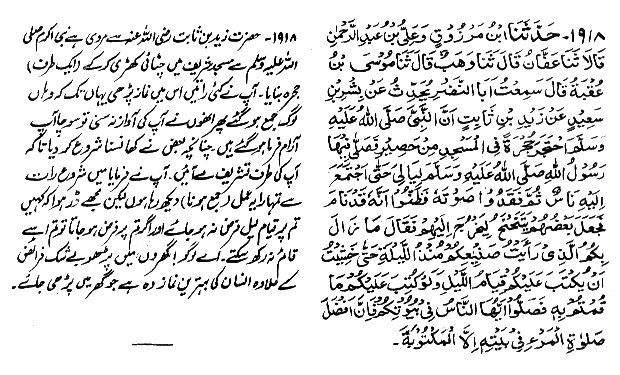 ۱۹۱۸- حَدَّثَنَا ابْنُ مَرْزُوْقٍ وَعَلِيُّ بْنُ عَبْدِ الرَّحْمٰنِ
قَالَا ثَنَا عَفَّانُ قَالَ ثَنَا وَهَبٌ قَالَ ثَنَا مُوْسَى بْنُ
عُقْبَةَ قَالَ سَمِعْتُ اَبَا النَّضْرِ يُحَدِّثُ عَنْ بِشْرِ بْنِ
سَعِيْدٍ عَنْ زَيْدِ بْنِ ثَابِتٍ اَنَّ النَّبِيَّ صَلَّى اللّٰهُ عَلَيْهِ
وَسَلَّمَ احْتَجَرَ حُجْرَةً فِي الْمَسْجِدِ مِنْ حَصِيْرٍ فَصَلّٰى فِيْهَا
رَسُوْلُ اللّٰهِ صَلَّى اللّٰهُ عَلَيْهِ وَسَلَّمَ لَيَالِيَ حَتّٰى اجْتَمَعَ
اِلَيْهِ نَاسٌ ثُمَّ فَقَدُوْا صَوْتَهٗ فَظَنُّوْا اَنَّهٗ قَدْ نَامَ
فَجَعَلَ بَعْضُهُمْ يَتَنَحْنَحُ لِيَخْرُجَ اِلَيْهِمْ فَقَالَ مَا زَالَ
بِكُمُ الَّذِيْ رَاَيْتُ صَنِيْعَكُمْ مُنْذُ اللَّيْلَةِ حَتّٰى خَشِيْتُ
اَنْ يُكْتَبَ عَلَيْكُمْ قِيَامُ اللَّيْلِ وَلَوْ كُتِبَ عَلَيْكُمْ مَا
قُمْتُمْ بِهٖ فَصَلُّوْا اَيُّهَا النَّاسُ فِيْ بُيُوْتِكُمْ فَاِنَّ اَفْضَلَ
صَلٰوةِ الْمَرْءِ فِيْ بَيْتِهٖ اِلَّا الْمَكْتُوْبَةَ۔
۱۹۱۸- حضرت زید بن ثابت رضی اللہ عنہ سے مروی ہے نبی اکرم صلی
اللہ علیہ وسلم نے مسجد شریف میں چٹائی کھڑی کر کے (ایک طرف)
حجرہ بنایا۔ آپ نے کئی راتیں اس میں نماز پڑھی یہاں تک کہ وہاں
لوگ جمع ہو گئے پھر انھوں نے آپ کی آواز نہ سنی تو سوچا آپ
آرام فرما ہو گئے ہیں۔ چنانچہ بعض نے کھانسنا شروع کر دیا تاکہ
آپ ان کی طرف تشریف لے آئیں۔ آپ نے فرمایا میں شروع رات
سے تمہارا یہ عمل (جمع ہونا) دیکھ رہا ہوں لیکن مجھے ڈر ہوا کہ کہیں
تم پر قیام لیل فرض نہ ہو جائے اور اگر تم پر فرض ہو جاتا تو تم اسے
قائم نہ رکھ سکتے۔ اے لوگو! گھروں میں پڑھو بے شک فرائض
کے علاوہ انسان کی بہترین نماز وہ ہے جو گھر میں پڑھی جائے۔